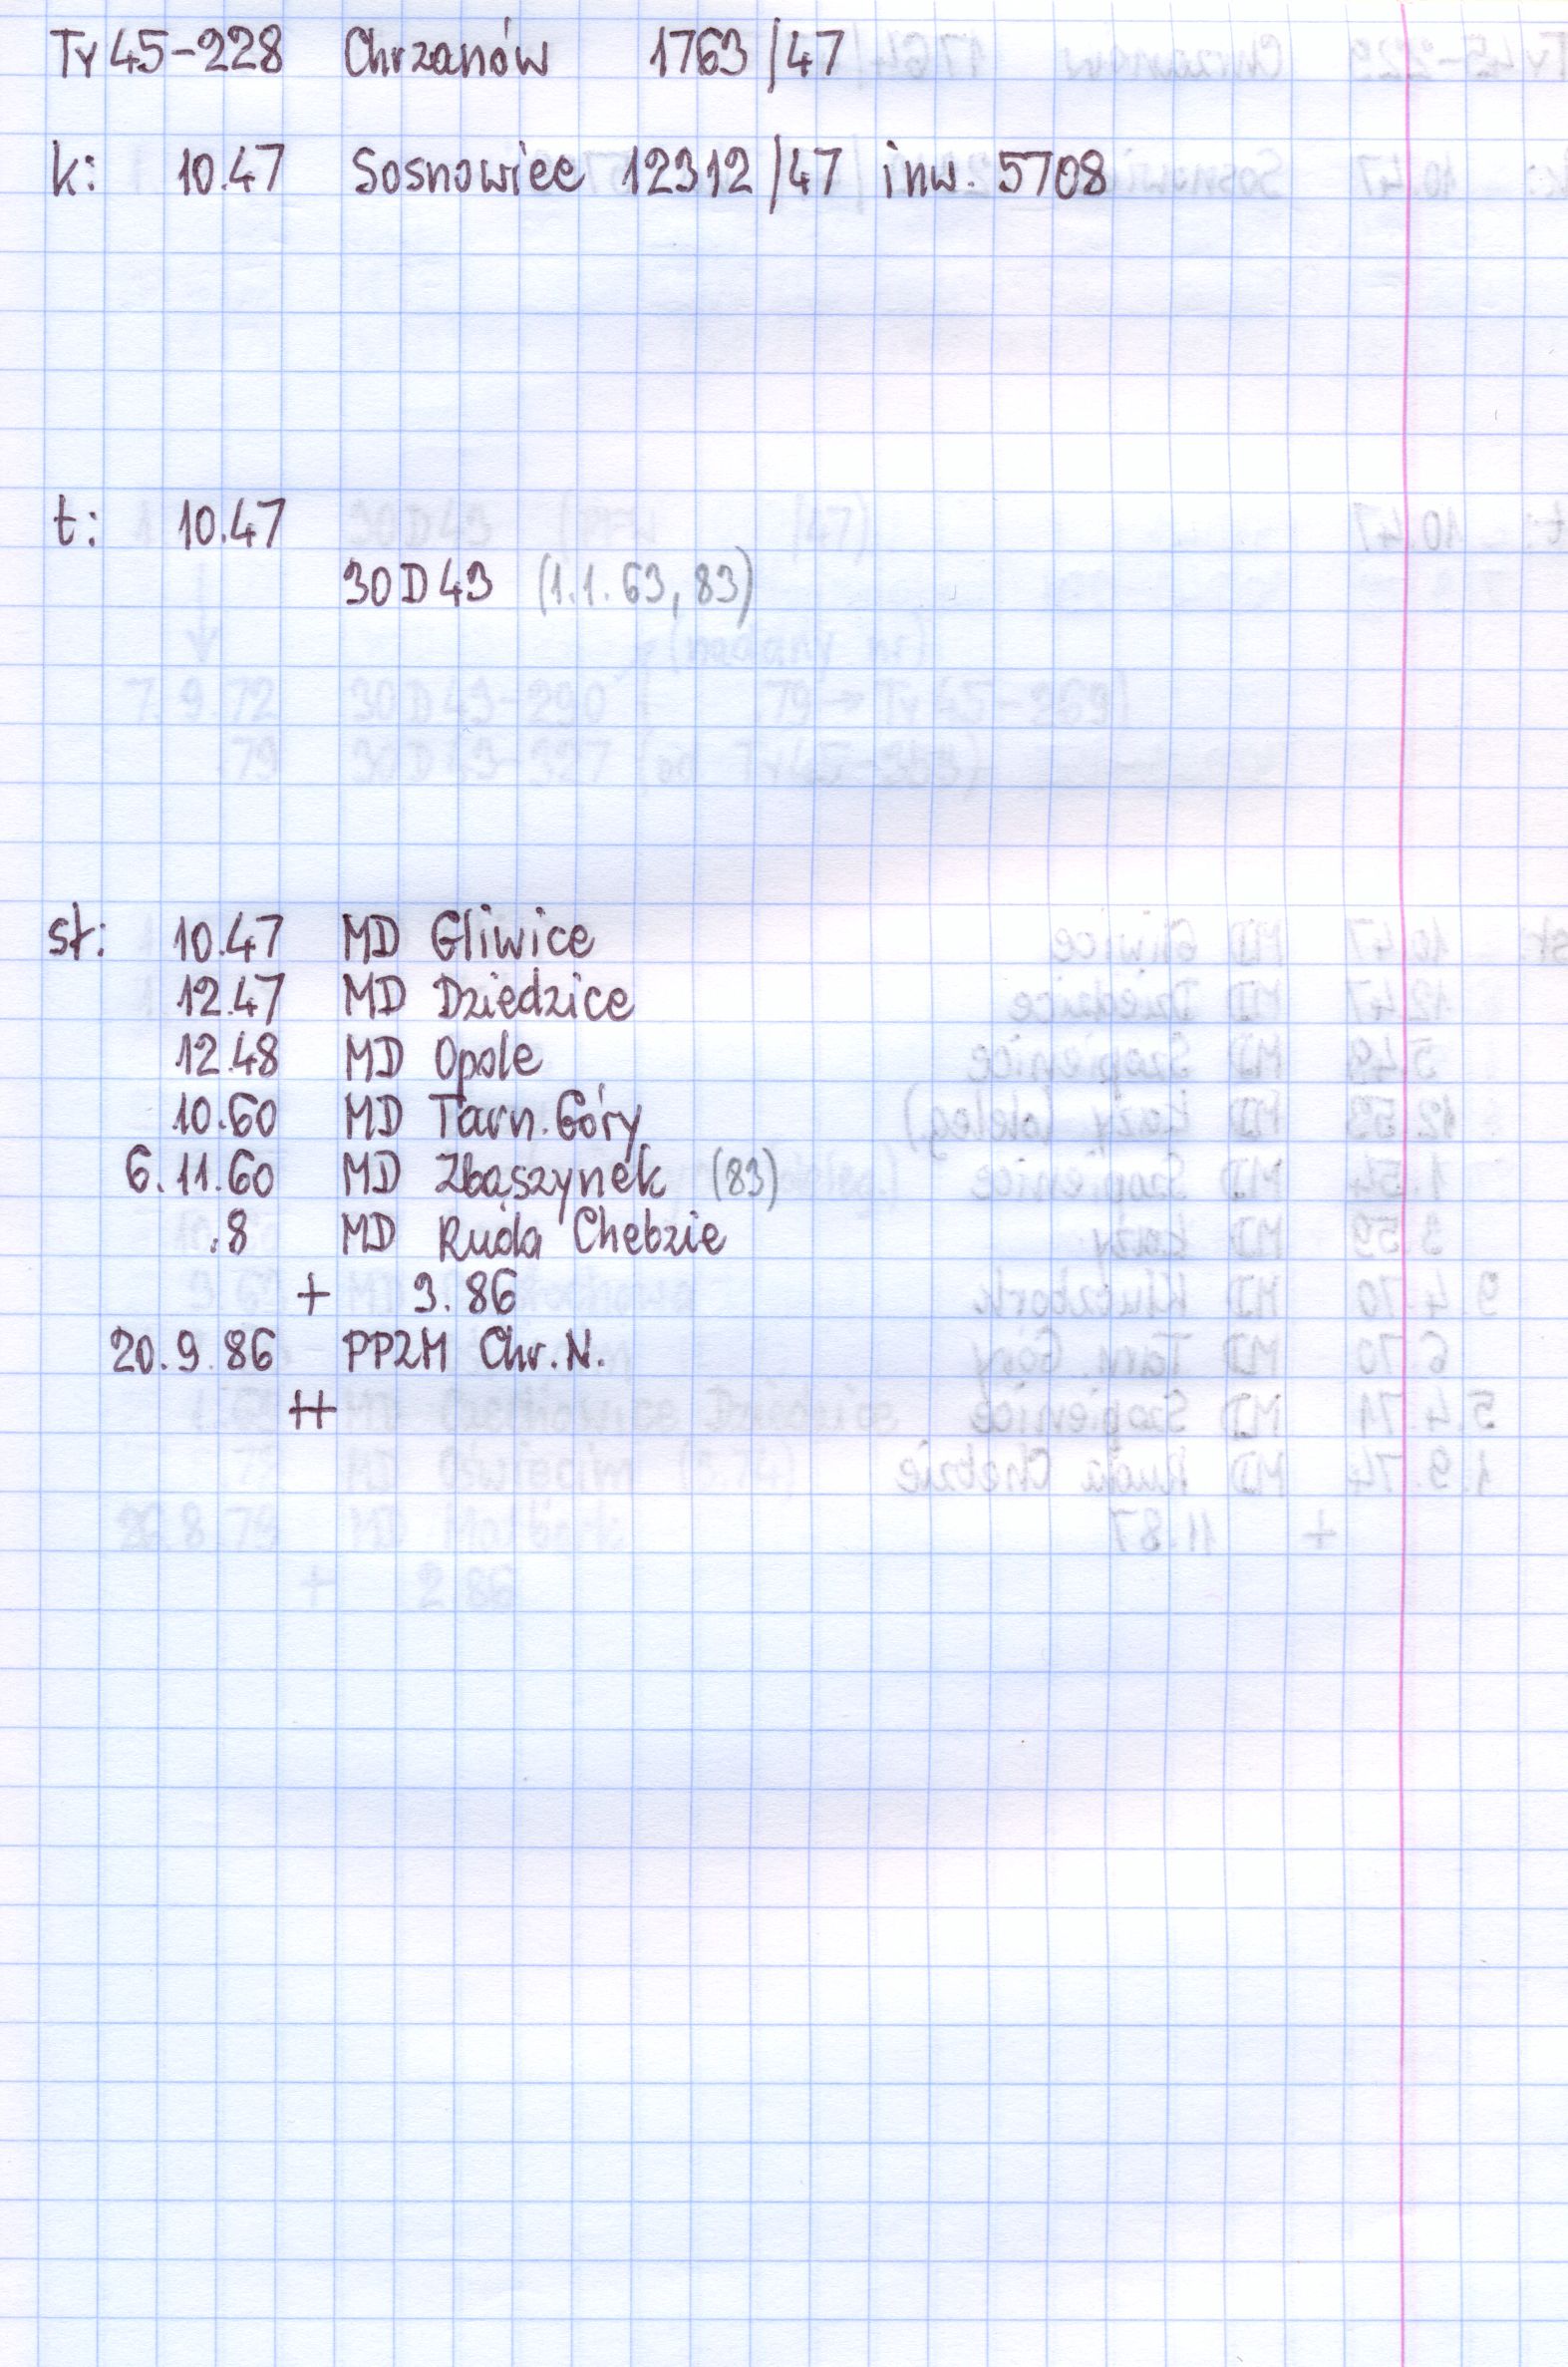 Ty45-228 Chrzanów 1763/47
k: 10.47 Sosnowiec 12312/47 inw. 5708
t: 10.47
30D43 (1.1.63, 83)
st: 10.47 MD Gliwice
12.47 MD Dziedzice
12.48 MD Opole
10.60 MD Tarn. Góry
6.11.60 MD Zbąszynek (83)
.8 MD Ruda Chebzie
+ 3.86
20.9.86 PPZM Chr. N.
++